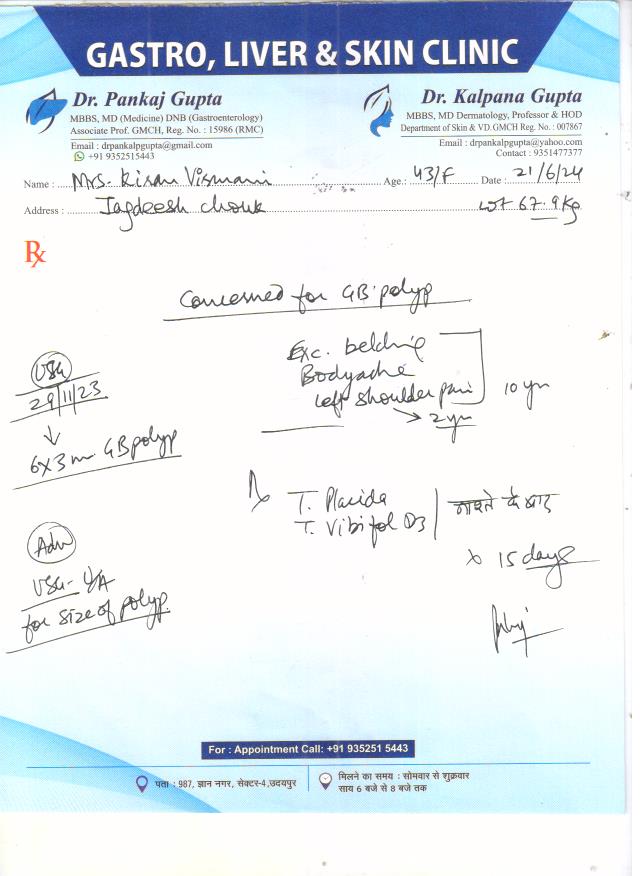 GASTRO, LIVER & SKIN CLINIC
Dr. Pankaj Gupta
MBBS, MD (Medicine) DNB (Gastroenterology)
Associate Prof. GMCH, Reg. No. : 15986 (RMC)
Email : drpankalpgupta@gmail.com
+91 9352515443
Dr. Kalpana Gupta
MBBS, MD Dermatology, Professor & HOD
Department of Skin & VD. GMCH Reg. No. : 007867
Email : drpankalpgupta@yahoo.com
Contact : 9351477377
Name : Mrs. Kiran Vismani Age : 43/F Date : 21/6/24
Address : Jagdeesh chouk wt 67.9 Kg
Rx
Concerned for GB polyp
Exc. belching
Bodyache
Left shoulder pain
10 yr
→ 2 yr
USG
29/11/23
↓
6x3 mm GB polyp
Rx
T. Placida
T. Vibifol D3
नाश्ते के बाद
x 15 days
Adv
USG - U/A
for size of polyp.
For : Appointment Call: +91 935251 5443
पता : 987, ज्ञान नगर, सेक्टर-4,उदयपुर
मिलने का समय : सोमवार से शुक्रवार
साय 6 बजे से 8 बजे तक